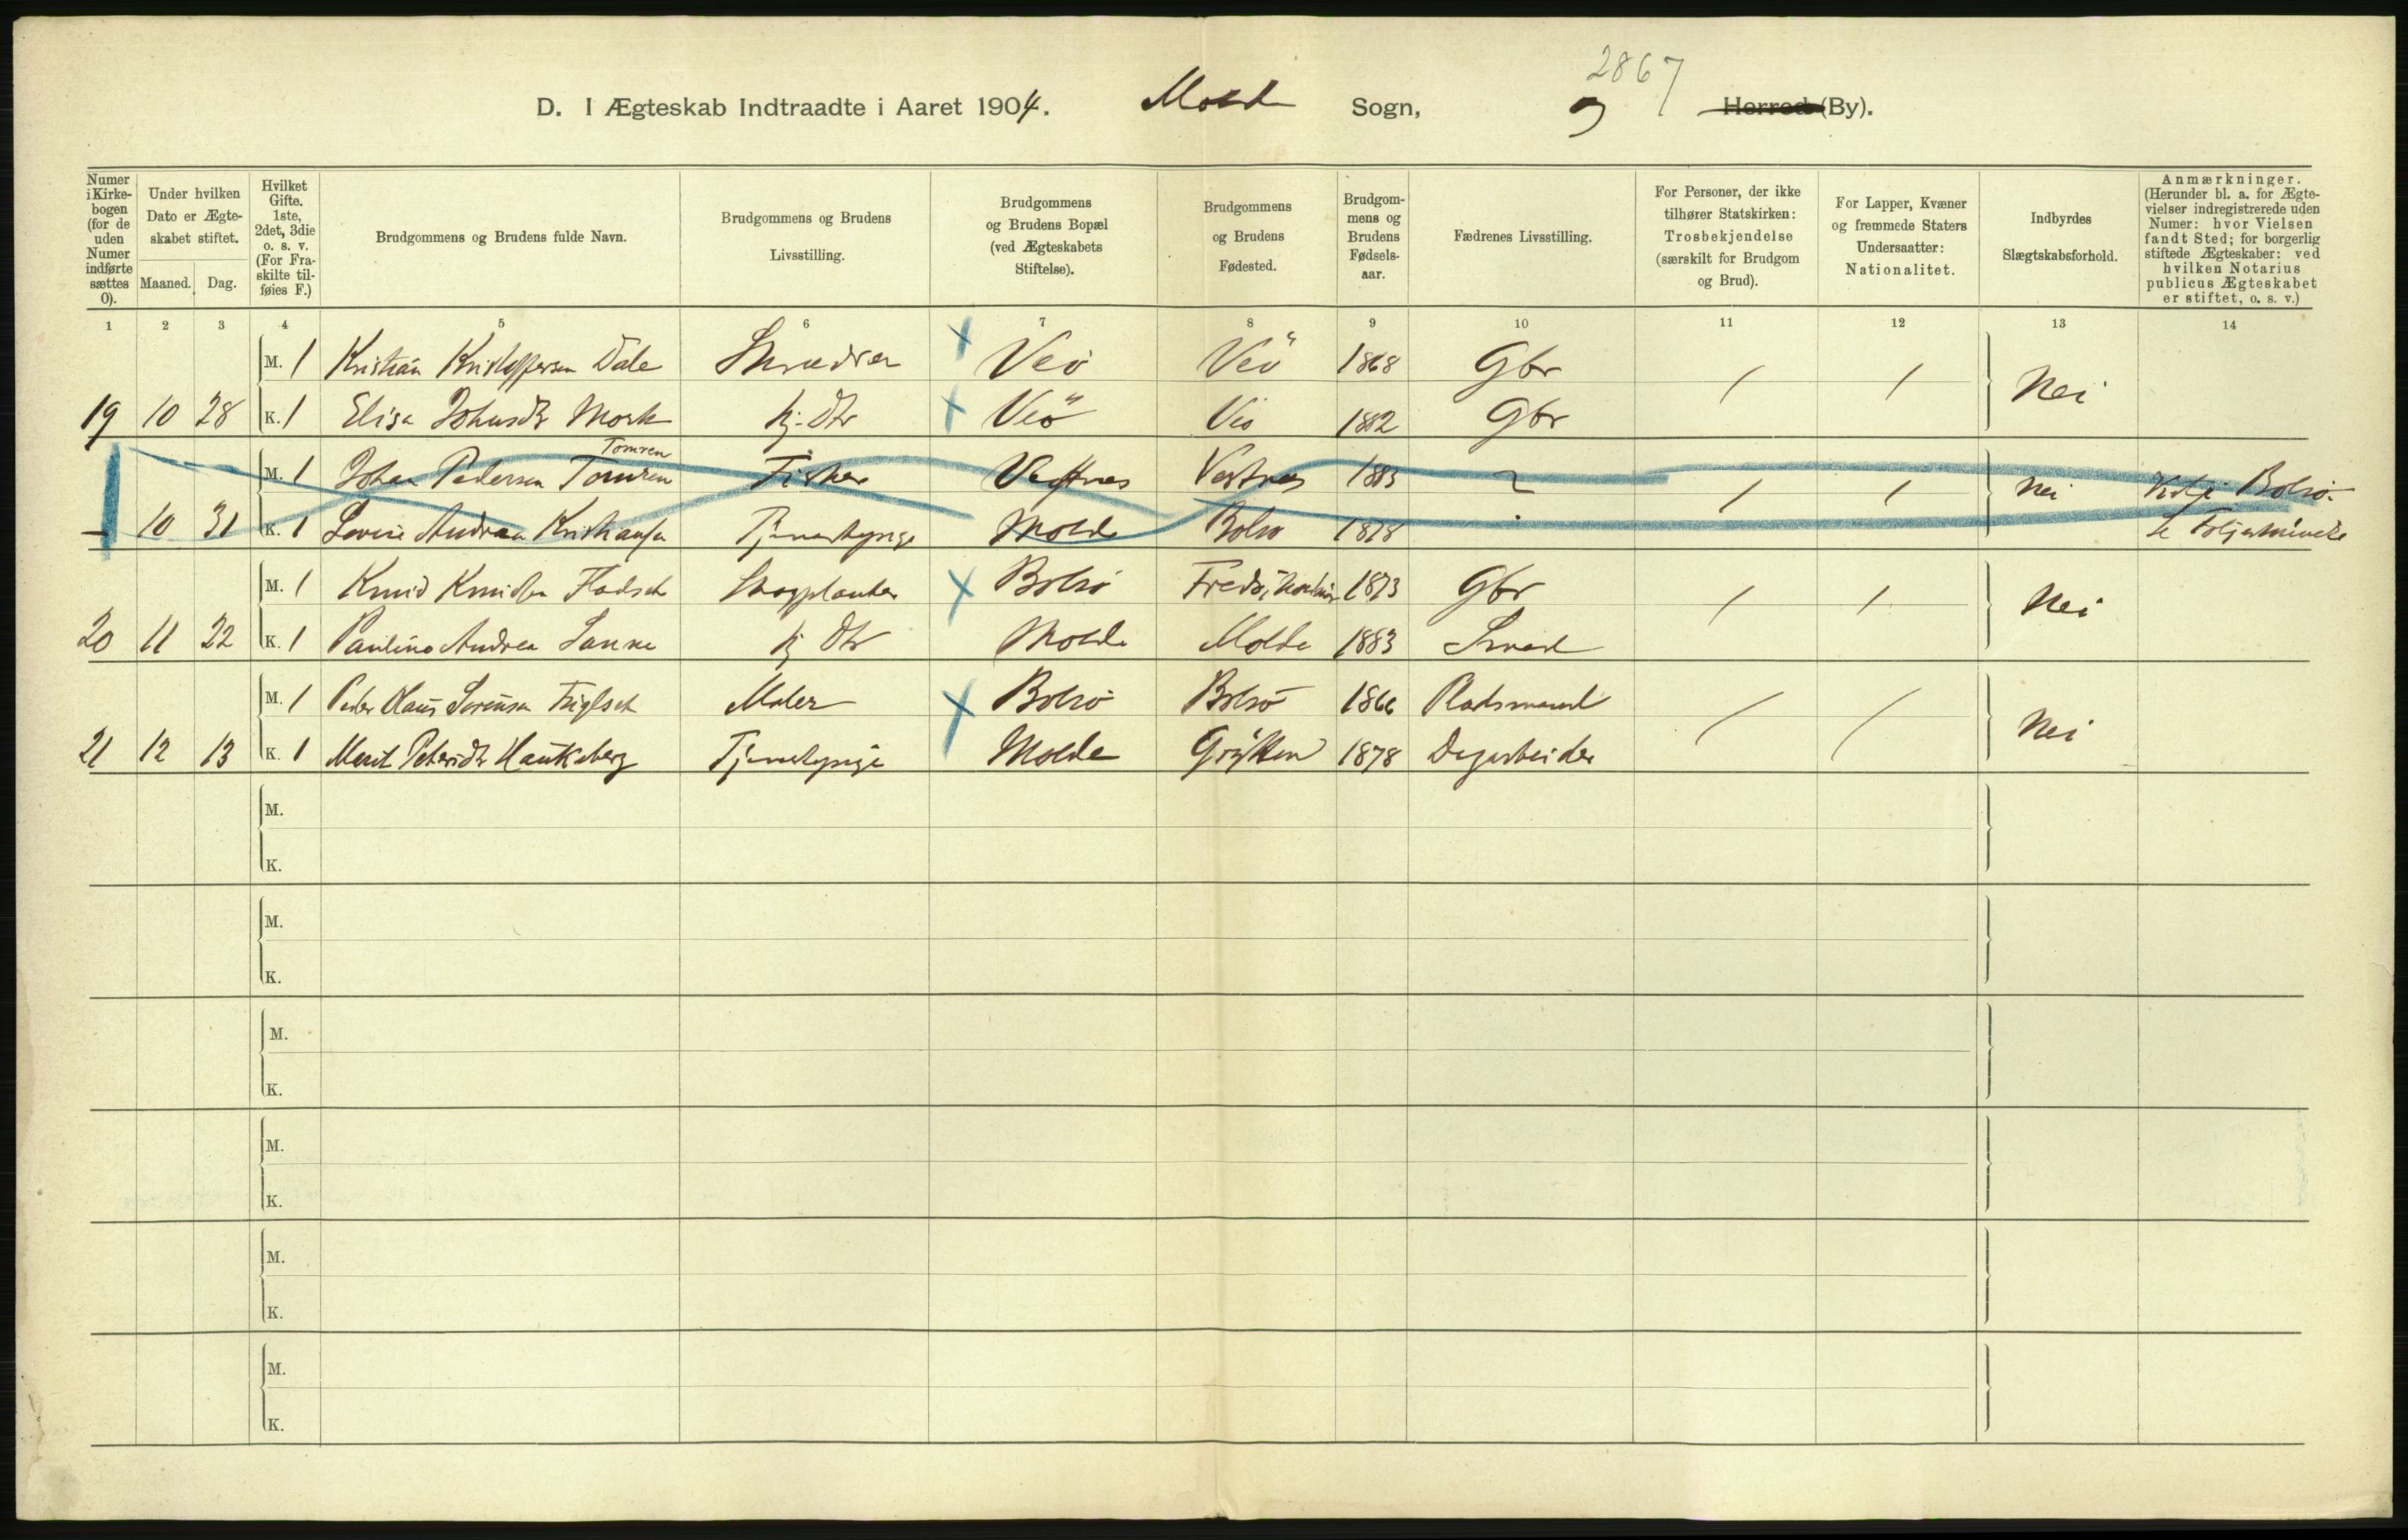 2867
D. I Ægteskab Indtraadte i Aaret 1904. Molde Sogn, " Herred (By).
Numer i Kirkebogen (for de uden Numer indførte sættes 0).
Under hvilken Dato er Ægteskabet stiftet.
Maaned. Dag.
Hvilket Gifte. 1ste, 2det, 3die o. s. v. (For Fraskilte tilføies F.)
Brudgommens og Brudens fulde Navn.
Brudgommens og Brudens Livsstilling.
Brudgommens og Brudens Bopæl (ved Ægteskabets Stiftelse).
Brudgommens og Brudens Fødested.
Brudgommens og Brudens Fødselsaar.
Fædrenes Livsstilling.
For Personer, der ikke tilhører Statskirken: Trosbekjendelse (særskilt for Brudgom og Brud).
For Lapper, Kvæner og fremmede Staters Undersaatter: Nationalitet.
Indbyrdes Slægtskabsforhold.
Anmærkninger. (Herunder bl. a. for Ægtevielser indregistrerede uden Numer: hvor Vielsen fandt Sted; for borgerlig stiftede Ægteskaber: ved hvilken Notarius publicus Ægteskabet er stiftet, o. s. v.)
1 2 3 4 5 6 7 8 9 10 11 12 13 14
M. 1 Kristian Kristoffersen Dale Skrædder Veö Veö 1868 Gbr / / Nei
19 10 28 K. 1 Elisa Johnsdtr Mork hj. Dtr Veö Veö 1882 Gbr
Tomren
M. 1 Johan Pedersen Tomren Fisker Vestnes Vestnes 1883 / / Nei Bolsö
— 10 31 K. 1 Lovise Andrea Kristiansen Tjenestepige Molde Bolsö 1878
M. 1 Knud Knudsen Fladset Skogplanter Bolsö Fredö, 1873 Gbr / / Nei
20 11 22 K. 1 Pauline Andrea Sanne hj Dtr Molde Molde 1883 Smed
M. 1 Peder Hans Sörensen Fuglset Maler Bolsö Bolsö 1866 Pladsmand / / Nei
21 12 13 K. 1 Marit Petersdtr Haukaberg Tjenestepige Molde Grytten 1878 Dagarbeider
M.
K.
M.
K.
M.
K.
M.
K.
M.
K.
M.
K.